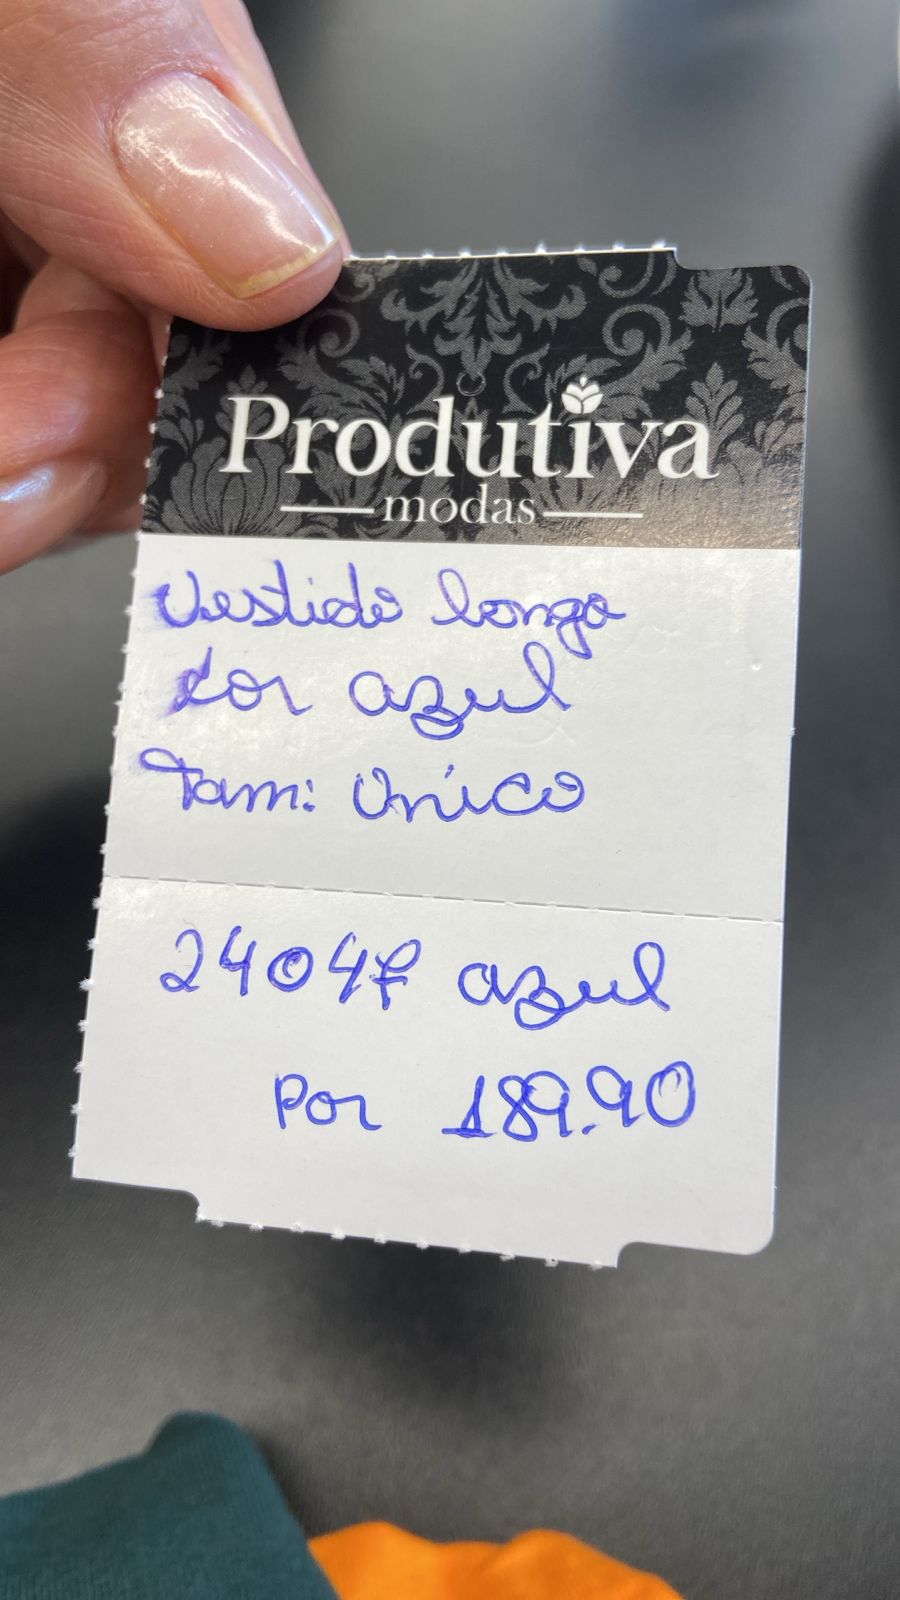 Produtiva
modas
Vestido longo
Cor azul
Tam: Único
24047 azul
Por 189.90